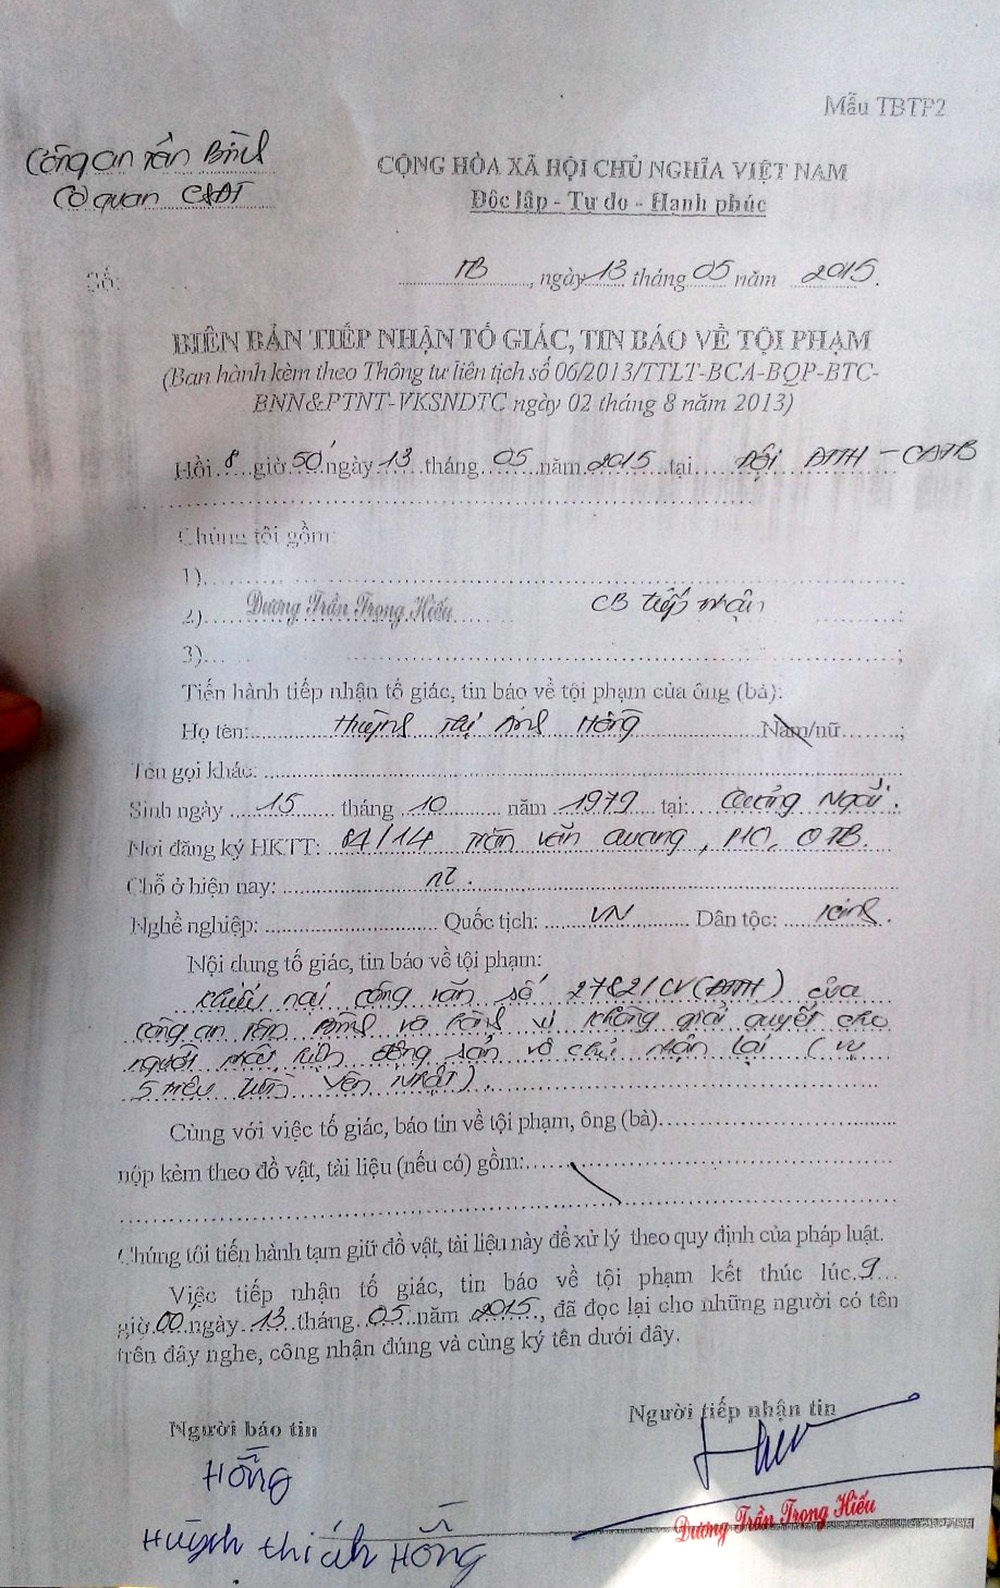 Mẫu TBTP2
Công an Tân Bình
Cơ quan CSĐT
CỘNG HÒA XÃ HỘI CHỦ NGHĨA VIỆT NAM
Độc lập - Tự do - Hạnh phúc
Số:
TB, ngày 13 tháng 05 năm 2015.
BIÊN BẢN TIẾP NHẬN TỐ GIÁC, TIN BÁO VỀ TỘI PHẠM
(Ban hành kèm theo Thông tư liên tịch số 06/2013/TTLT-BCA-BQP-BTC-
BNN&PTNT-VKSNDTC ngày 02 tháng 8 năm 2013)
Hồi 8 giờ 50 ngày 13 tháng 05 năm 2015 tại Đội ĐTTH - CATB
Chúng tôi gồm:
1)
2) Dương Trần Trọng Hiếu CB tiếp nhận ;
3) ;
Tiến hành tiếp nhận tố giác, tin báo về tội phạm của ông (bà):
Họ tên: Huỳnh Thị Ánh Hồng Nam/nữ ;
Tên gọi khác:
Sinh ngày 15 tháng 10 năm 1979 tại: Quảng Ngãi.
Nơi đăng ký HKTT: 84/14 Trần Văn Quang, P10, QTB.
Chỗ ở hiện nay: nt.
Nghề nghiệp: Quốc tịch: VN Dân tộc: Kinh.
Nội dung tố giác, tin báo về tội phạm:
Khiếu nại công văn số 2782/CV(ĐTTH) của
Công an Tân Bình và hành vi không giải quyết cho
người phát hiện động sản vô chủ nhận lại (vụ
5 triệu Yên Nhật).
Cùng với việc tố giác, báo tin về tội phạm, ông (bà)
nộp kèm theo đồ vật, tài liệu (nếu có) gồm:
Chúng tôi tiến hành tạm giữ đồ vật, tài liệu này để xử lý theo quy định của pháp luật.
Việc tiếp nhận tố giác, tin báo về tội phạm kết thúc lúc 9
giờ 00 ngày 13 tháng 05 năm 2015, đã đọc lại cho những người có tên
trên đây nghe, công nhận đúng và cùng ký tên dưới đây.
Người báo tin
Người tiếp nhận tin
Hồng
Dương Trần Trọng Hiếu
Huỳnh thị ánh Hồng